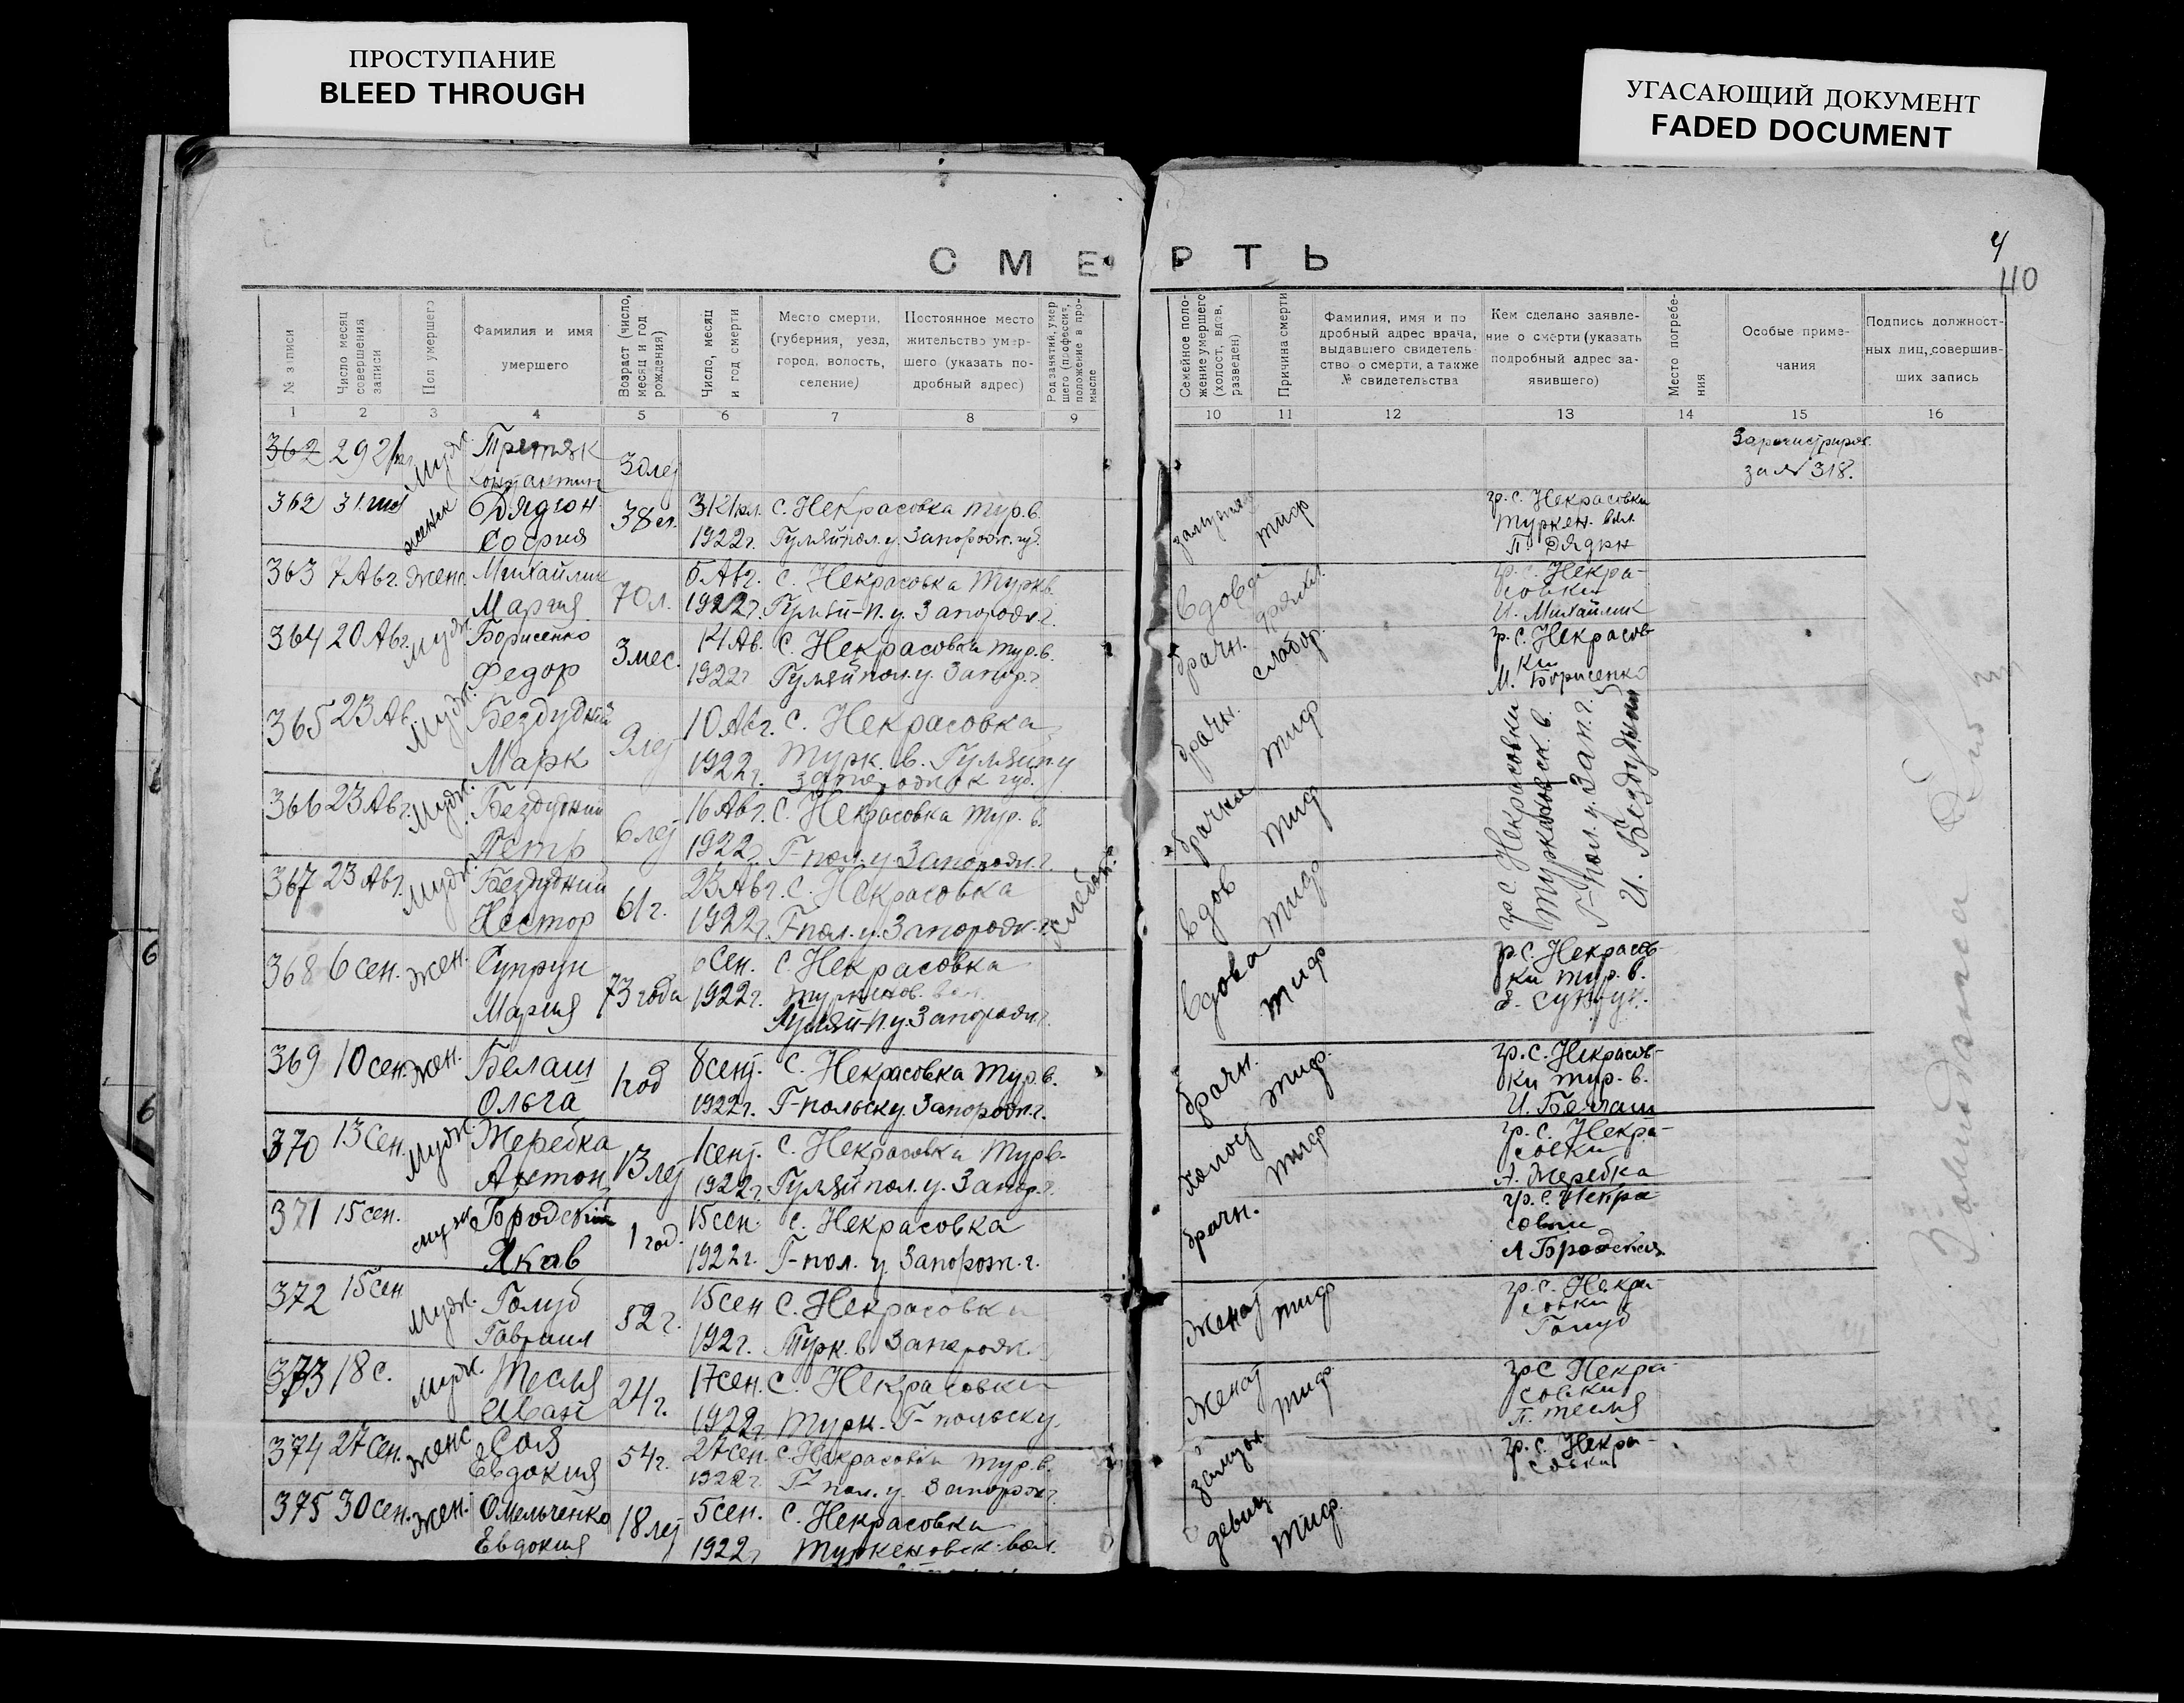 ПРОСТУПАНИЕ
BLEED THROUGH
УГАСАЮЩИЙ ДОКУМЕНТ
FADED DOCUMENT
СМЕРТЬ
4
110
№ записи
Число месяц совершения записи
Пол умершего
Фамилия и имя
умершего
Возраст (число, месяц и год рождения)
Число, месяц и год смерти
Место смерти,
(губерния, уезд,
город, волость,
селение)
Постоянное место
жительство умер-
шего (указать по-
дробный адрес)
Род занятий, умер
шего (профессия,
положение в про-
мысле
Семейное поло-
жение умершего
(холост, вдов,
разведен)
Причина смерти
Фамилия, имя и по
дробный адрес врача,
выдавшего свидетель-
ство о смерти, а также
№ свидетельства
Кем сделано заявле-
ние о смерти (указать
подробный адрес за-
явившего)
Место погребе-
ния
Особые приме-
чания
Подпись должност-
ных лиц, совершив-
ших запись
1 2 3 4 5 6 7 8 9 10 11 12 13 14 15 16
362 Мудж. Третяк
за № 318.
362 Дядюн 38 л. С. Некрасовка тур. в. тиф гр. с. Некрасовки
София 1922 г. Гуляйпол. у. Запорож. губ. Туркен. вол.
П. Дядюн
363 7 Авг. Жен. Михайлик 70 л. 5 Авг. С. Некрасовка Турк. в. вдова гр. с. Некра-
Мария 1922 г. Гуляй-п. у. Запорож. г. совки
И. Михайлик
364 20 Авг. Мудж. Борисенко 3 мес. 14 Ав. С. Некрасовка тур. в. брачн. слабор. гр. с. Некрасов
Федор 1922 г. Гуляйпол. у. Запор. г. ки
М. Борисенко
365 23 Ав. Мудж. Бездудний 9 лет 10 Авг. С. Некрасовка брачн. тиф гр. с. Некрасовки
Марк 1922 г. Турк. в. Гуляйп. у
366 23 Авг. Мудж. Бездудний 6 лет 16 Авг. С. Некрасовка тур. в. тиф Г-пол. у. Зап. г.
Петр 1922 г. Г-пол. у. Запорож. г. И. Бездудний
367 23 Авг. Мудж. Бездудний 61 г. 23 Авг. С. Некрасовка вдов тиф
Нестор 1922 г. Г-пол. у. Запорож. г.
368 6 сен. Жен. Супрун 73 года 6 Сен. С. Некрасовка вдова тиф гр. с. Некрасов-
Мария 1922 г. Туркенов. вол. ки тур. в.
Гуляй-п. у. Запорож. г. Е. Супрун.
369 10 сен. Жен. Белаш 1 год 8 сент. С. Некрасовка Тур. в. брачн. тиф. гр. с. Некрасов-
Ольга 1922 г. Г-польск у. Запорож. г. ки тур. в.
И. Белаш
370 13 сен. Мудж. Жеребка 13 лет 1 сент. С. Некрасовка Тур в. холост тиф гр. с. Некра-
Антон 1922 г. Гуляйпол. у. Запор. г. совки
А. Жеребка
371 15 сен. муж Бродский 1 год. 15 сен. С. Некрасовка брачн. гр. с. Некра
Якав 1922 г. Г-пол. у Запорож. г. совки
А Бродская
372 15 сен Мудж. Голуб 52 г. 15 сен С. Некрасовка Женат тиф гр. с. Некра-
Гавриил 192 г. Турк. в. Запорож. совки
Голуб
373 18 с. Мудж. Тесля 24 г. 17 сен. С. Некрасовки Женат тиф гр с Некра-
Иван 1922 г. Турк. Г-польск у. совки
П. Тесля
374 27 сен. Женс 54 г. 27 сен. С. Некрасовки тур. в. гр. с. Некра-
Евдокия 1922 г. Г-пол. у. Запорож г. совки
375 30 сен. Жен. Омельченко 18 лет 5 сен. С. Некрасовки девиц тиф.
Евдокия 1922 г. Туркеновск. вол.